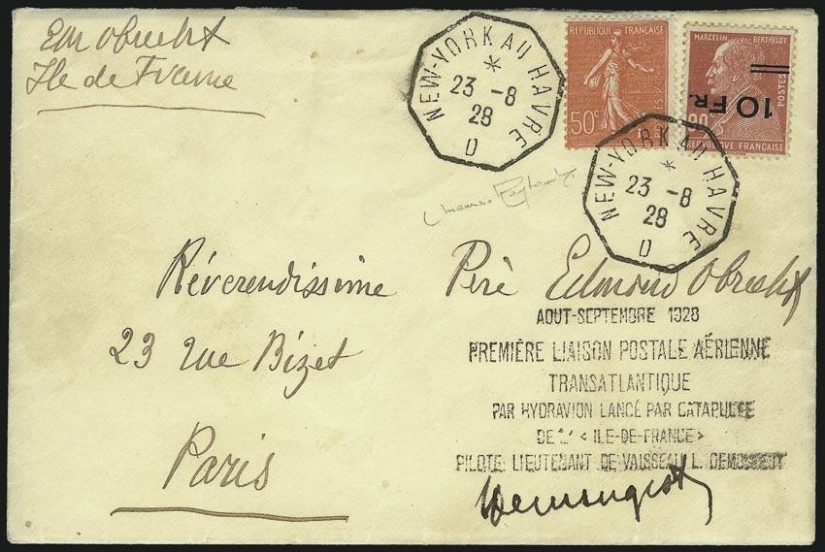 Edm Obrecht
Ile de France
NEW-YORK AU HAVRE
*
23 -8
28
D
REPUBLIQUE FRANÇAISE
50c
POSTES
MARCELIN BERTHELOT
10 FR.
90
POSTES
REPUBLIQUE FRANÇAISE
NEW-YORK AU HAVRE
*
23 -8
28
D
Réverendissime Père Edmond Obrecht
23 rue Bizet
Paris
AOUT-SEPTEMBRE 1928
PREMIÈRE LIAISON POSTALE AÉRIENNE
TRANSATLANTIQUE
PAR HYDRAVION LANCÉ PAR CATAPULTE
DE L' < ILE-DE-FRANCE>
PILOTE: LIEUTENANT DE VAISSEAU L. DEMOUGEOT
LDemougeot